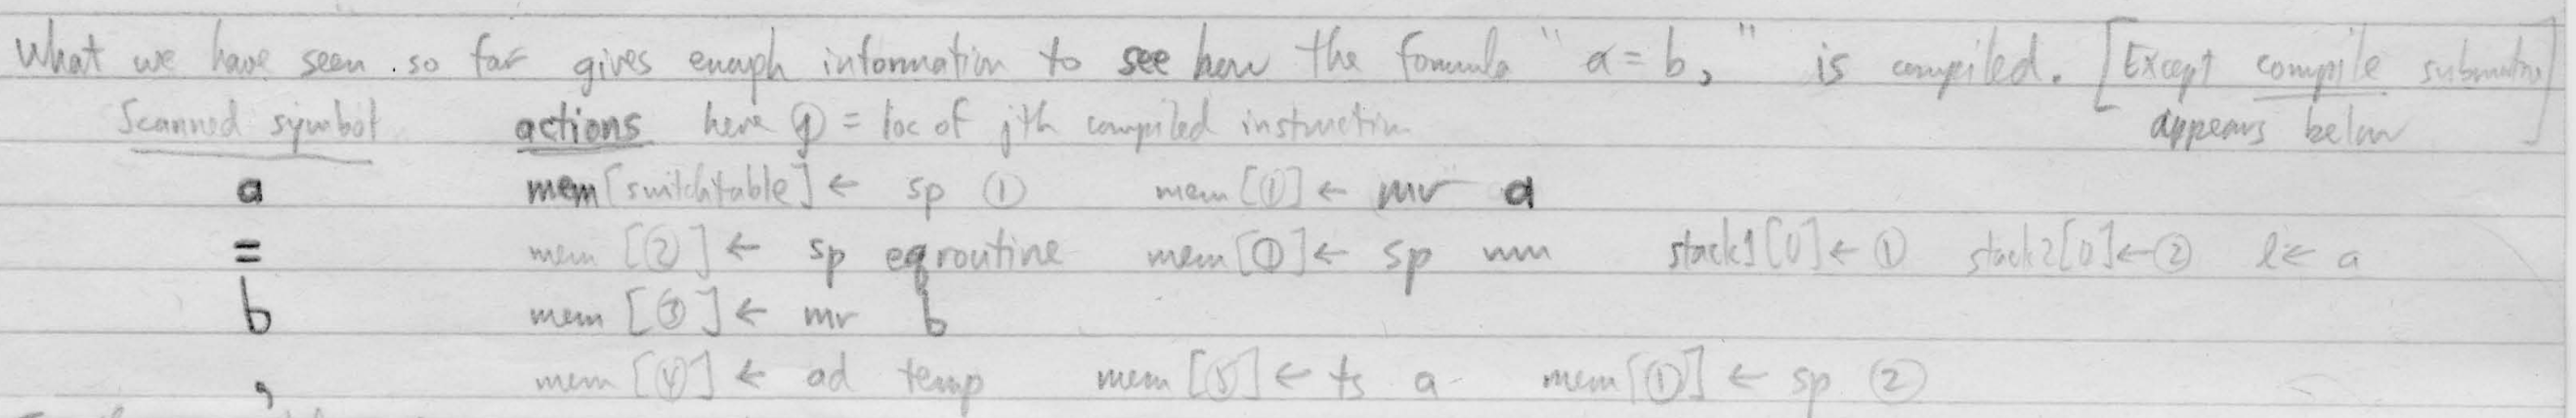 What we have seen so far gives enough information to see how the formula "a = b," is compiled. [Except compile subroutine
Scanned symbol actions here ⓙ = loc of jth compiled instruction appears below]
a mem[switchtable] ← sp ① mem[①] ← mr a
= mem[②] ← sp eqroutine mem[①] ← sp stack1[0] ← ① stack2[0] ← ② l ← a
b mem[③] ← mr b
, mem[④] ← ad temp mem[⑤] ← ts a mem[①] ← sp ②